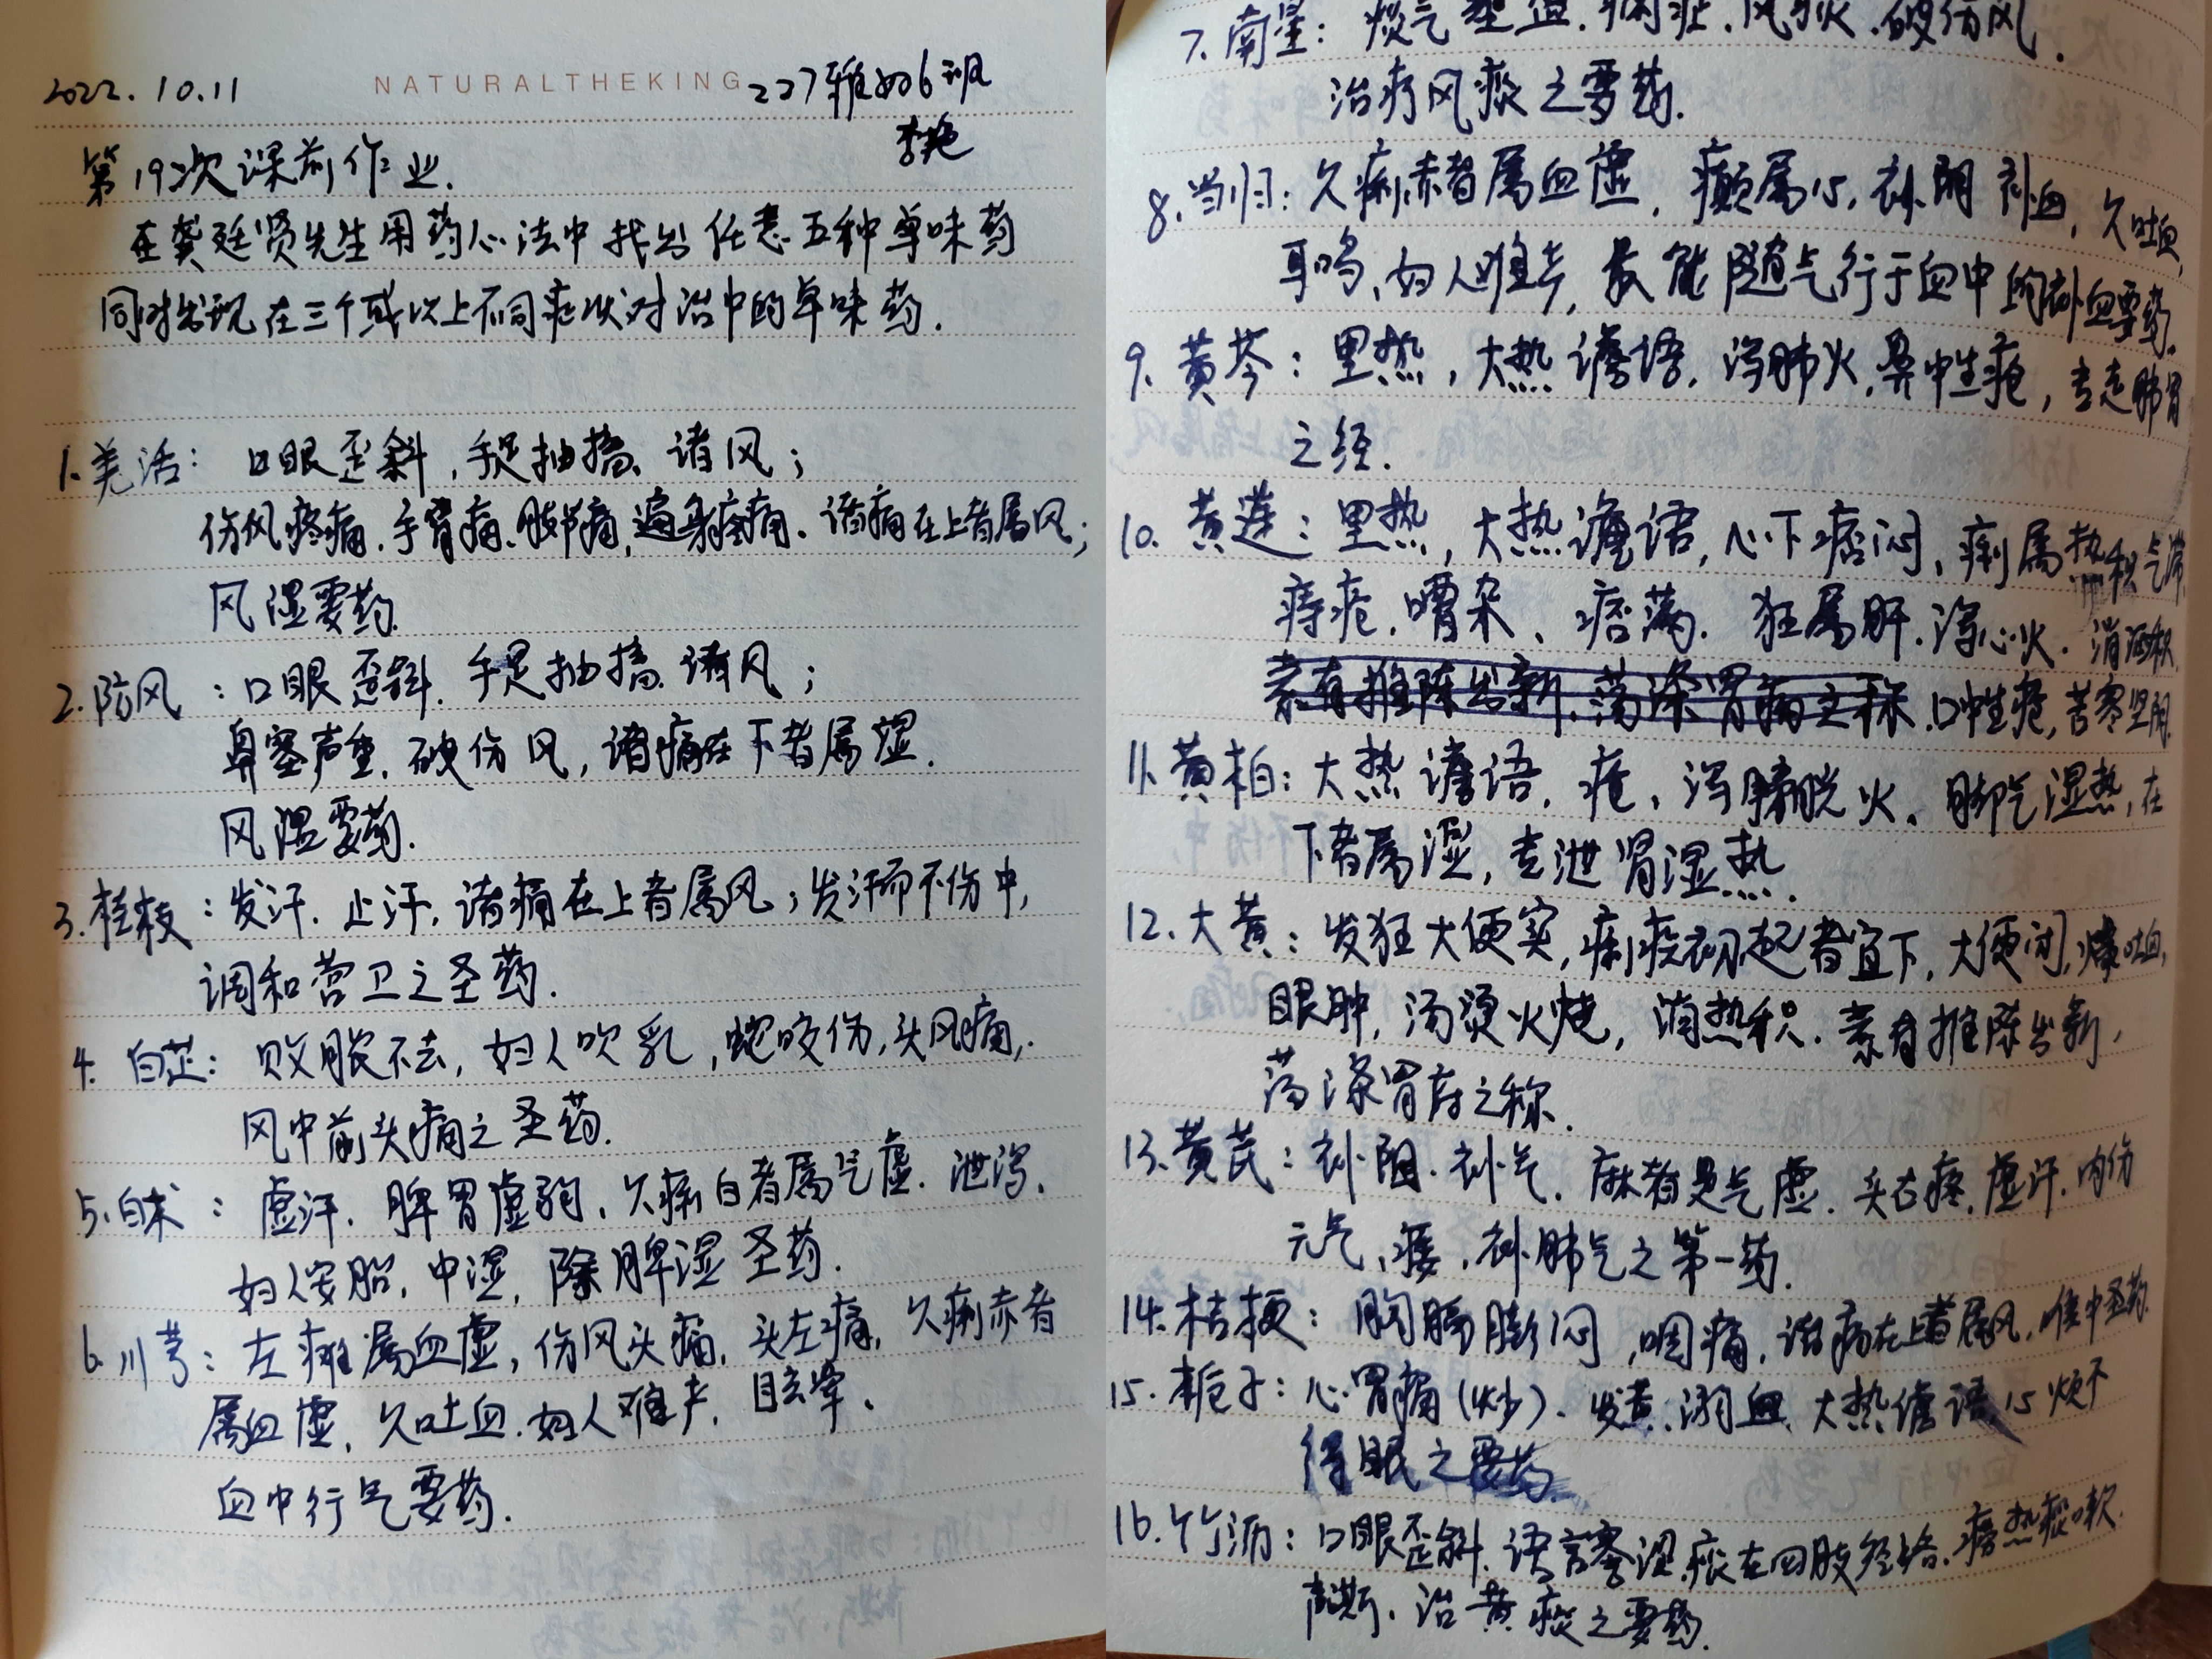 2022.10.11
NATURALTHEKING
227雅如6班
李艳
第19次课前作业.
在龚廷贤先生用药心法中找出任意五种单味药
同时出现在三个或以上不同症状对治中的单味药.
1.羌活: 口眼歪斜,手足抽搐,诸风;
伤风疼痛.手臂痛.肢节痛,遍身疼痛.诸痛在上者属风;
风湿要药.
2.防风:口眼歪斜.手足抽搐.诸风;
鼻塞声重.破伤风,诸痛在下者属湿.
风湿要药.
3.桂枝:发汗.止汗,诸痛在上者属风;发汗而不伤中,
调和营卫之圣药.
4.白芷:败脓不去,妇人吹乳,蛇咬伤,头风痛,.
风中前头痛之圣药.
5.白术:虚汗.脾胃虚弱、久痢白者属气虚.泄泻.
妇人安胎,中湿,除脾湿圣药.
6.川芎:左瘫属血虚,伤风头痛,头左痛,久痢赤者
属血虚,久吐血.妇人难产,目玄晕、
血中行气要药.
7.南星: 痰气壅盛.痫症.风痰.破伤风.
治疗风痰之要药.
8.当归:久痢赤者属血虚,癫属心,补阴补血,久吐血,
耳鸣、妇人难产,最能随气行于血中的补血要药.
9.黄芩:里热,大热谵语.泻肺火,鼻中生疮,专走肺胃
之经.
10.黄莲:里热,大热谵语,心下痞闷、痢属热积气滞
痔疮.嘈杂、痞满.狂属肝.泻心火.消酒积
素有推陈出新.荡涤胃痛之称.口中生疮,苦寒坚阴.
11.黄柏:大热谵语.疮、泻膀胱火、脚气湿热,在
下者属湿,专泄肾湿热.
12.大黄:发狂大便实,痢疾初起者宜下,大便闭,爆吐血,
眼肿,汤烫火烧,消热积.素有推陈出新,
荡涤胃府之称.
13.黄芪:补阳.补气.麻者是气虚.头右疼,虚汗.内伤
元气、痿,补肺气之第一药.
14.桔梗:胸膈膨闷,咽痛,诸病在上者属风,喉中圣药.
15.栀子:心胃痛(炒).发黄.溺血、大热谵语,心烦不
得眠之要药.
16.竹沥:口眼歪斜.语言蹇涩.痰在四肢经络.痨热痰嗽.
治黄痰之要药.